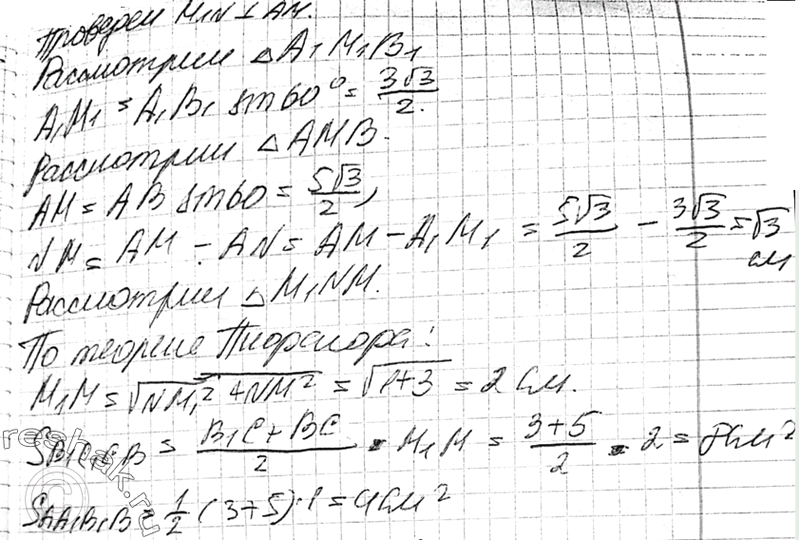 Проверем M₁N ⊥ AM.
Рассмотрим △A₁M₁B₁
A₁M₁ = A₁B₁ sin60° = 3√3/2.
Рассмотрим △AMB.
AM = AB sin60 = 5√3/2,
NM = AM - AN = AM - A₁M₁ = 5√3/2 - 3√3/2 = √3 см
Рассмотрим △M₁NM.
По теореме Пифагора:
M₁M = √NM₁² + NM² = √1+3 = 2 см.
S B₁C₁CB = B₁C + BC/2 · M₁M = 3+5/2 · 2 = 8 см²
S AA₁B₁B = 1/2 (3+5)·1 = 4 см²
reshak.ru